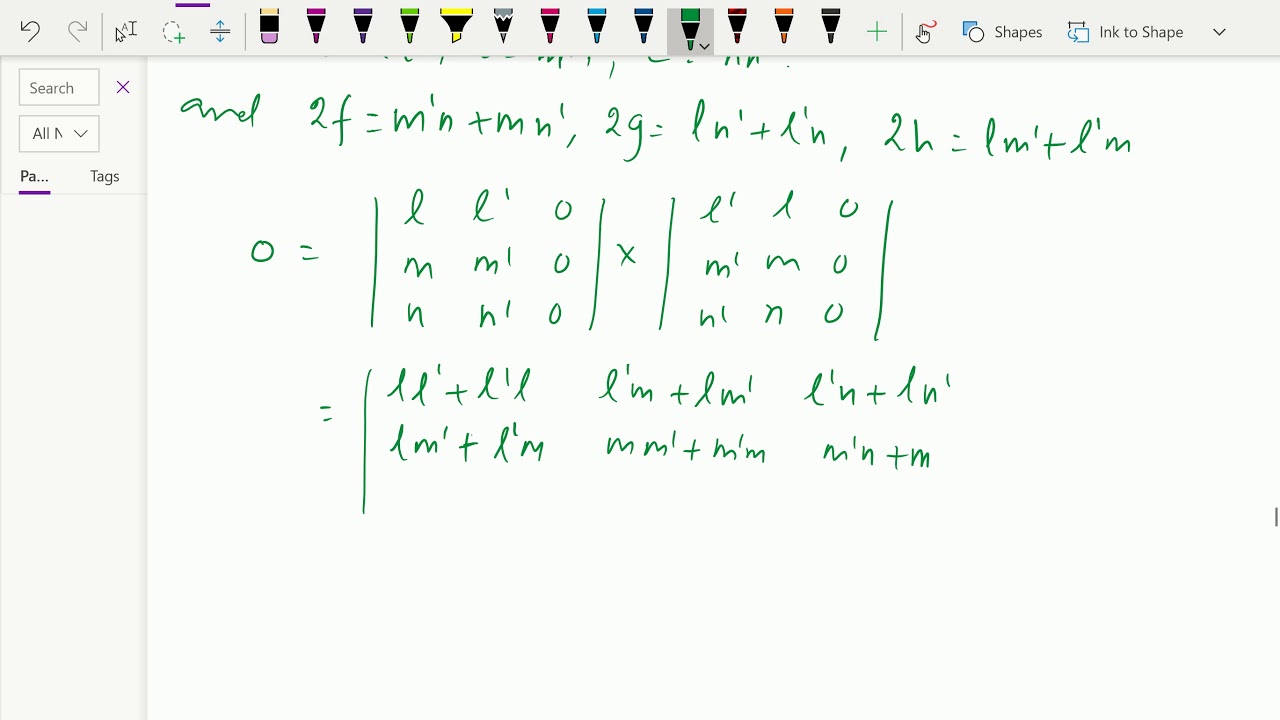 Shapes Ink to Shape
Search
All N
Pa... Tags
and 2f = m'n + mn', 2g = ln' + l'n, 2h = lm' + l'm
0 = | l l' 0 | × | l' l 0 |
| m m' 0 | | m' m 0 |
| n n' 0 | | n' n 0 |
= | ll' + l'l l'm + lm' l'n + ln'
| lm' + l'm mm' + m'm m'n + m